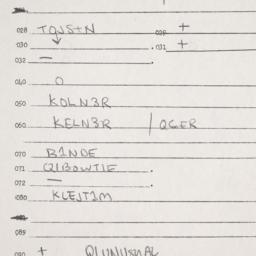 028 TQJS+N 029 +
030 . 031 +
032 —
040 O
050 KOLN3R
060 KELN3R / QGER
070 B1NDE
071 Q1BOWTIE .
072 — .
080 KLEJT1M
089
090 +